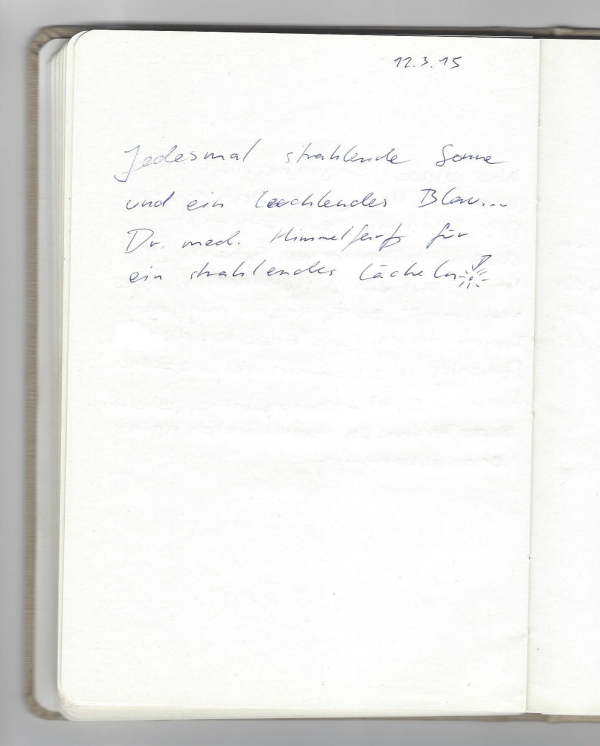 12.3.15
Jedesmal strahlende Sonne
und ein leuchtendes Blau...
Dr. med. Himmel für
ein strahlendes Lächeln